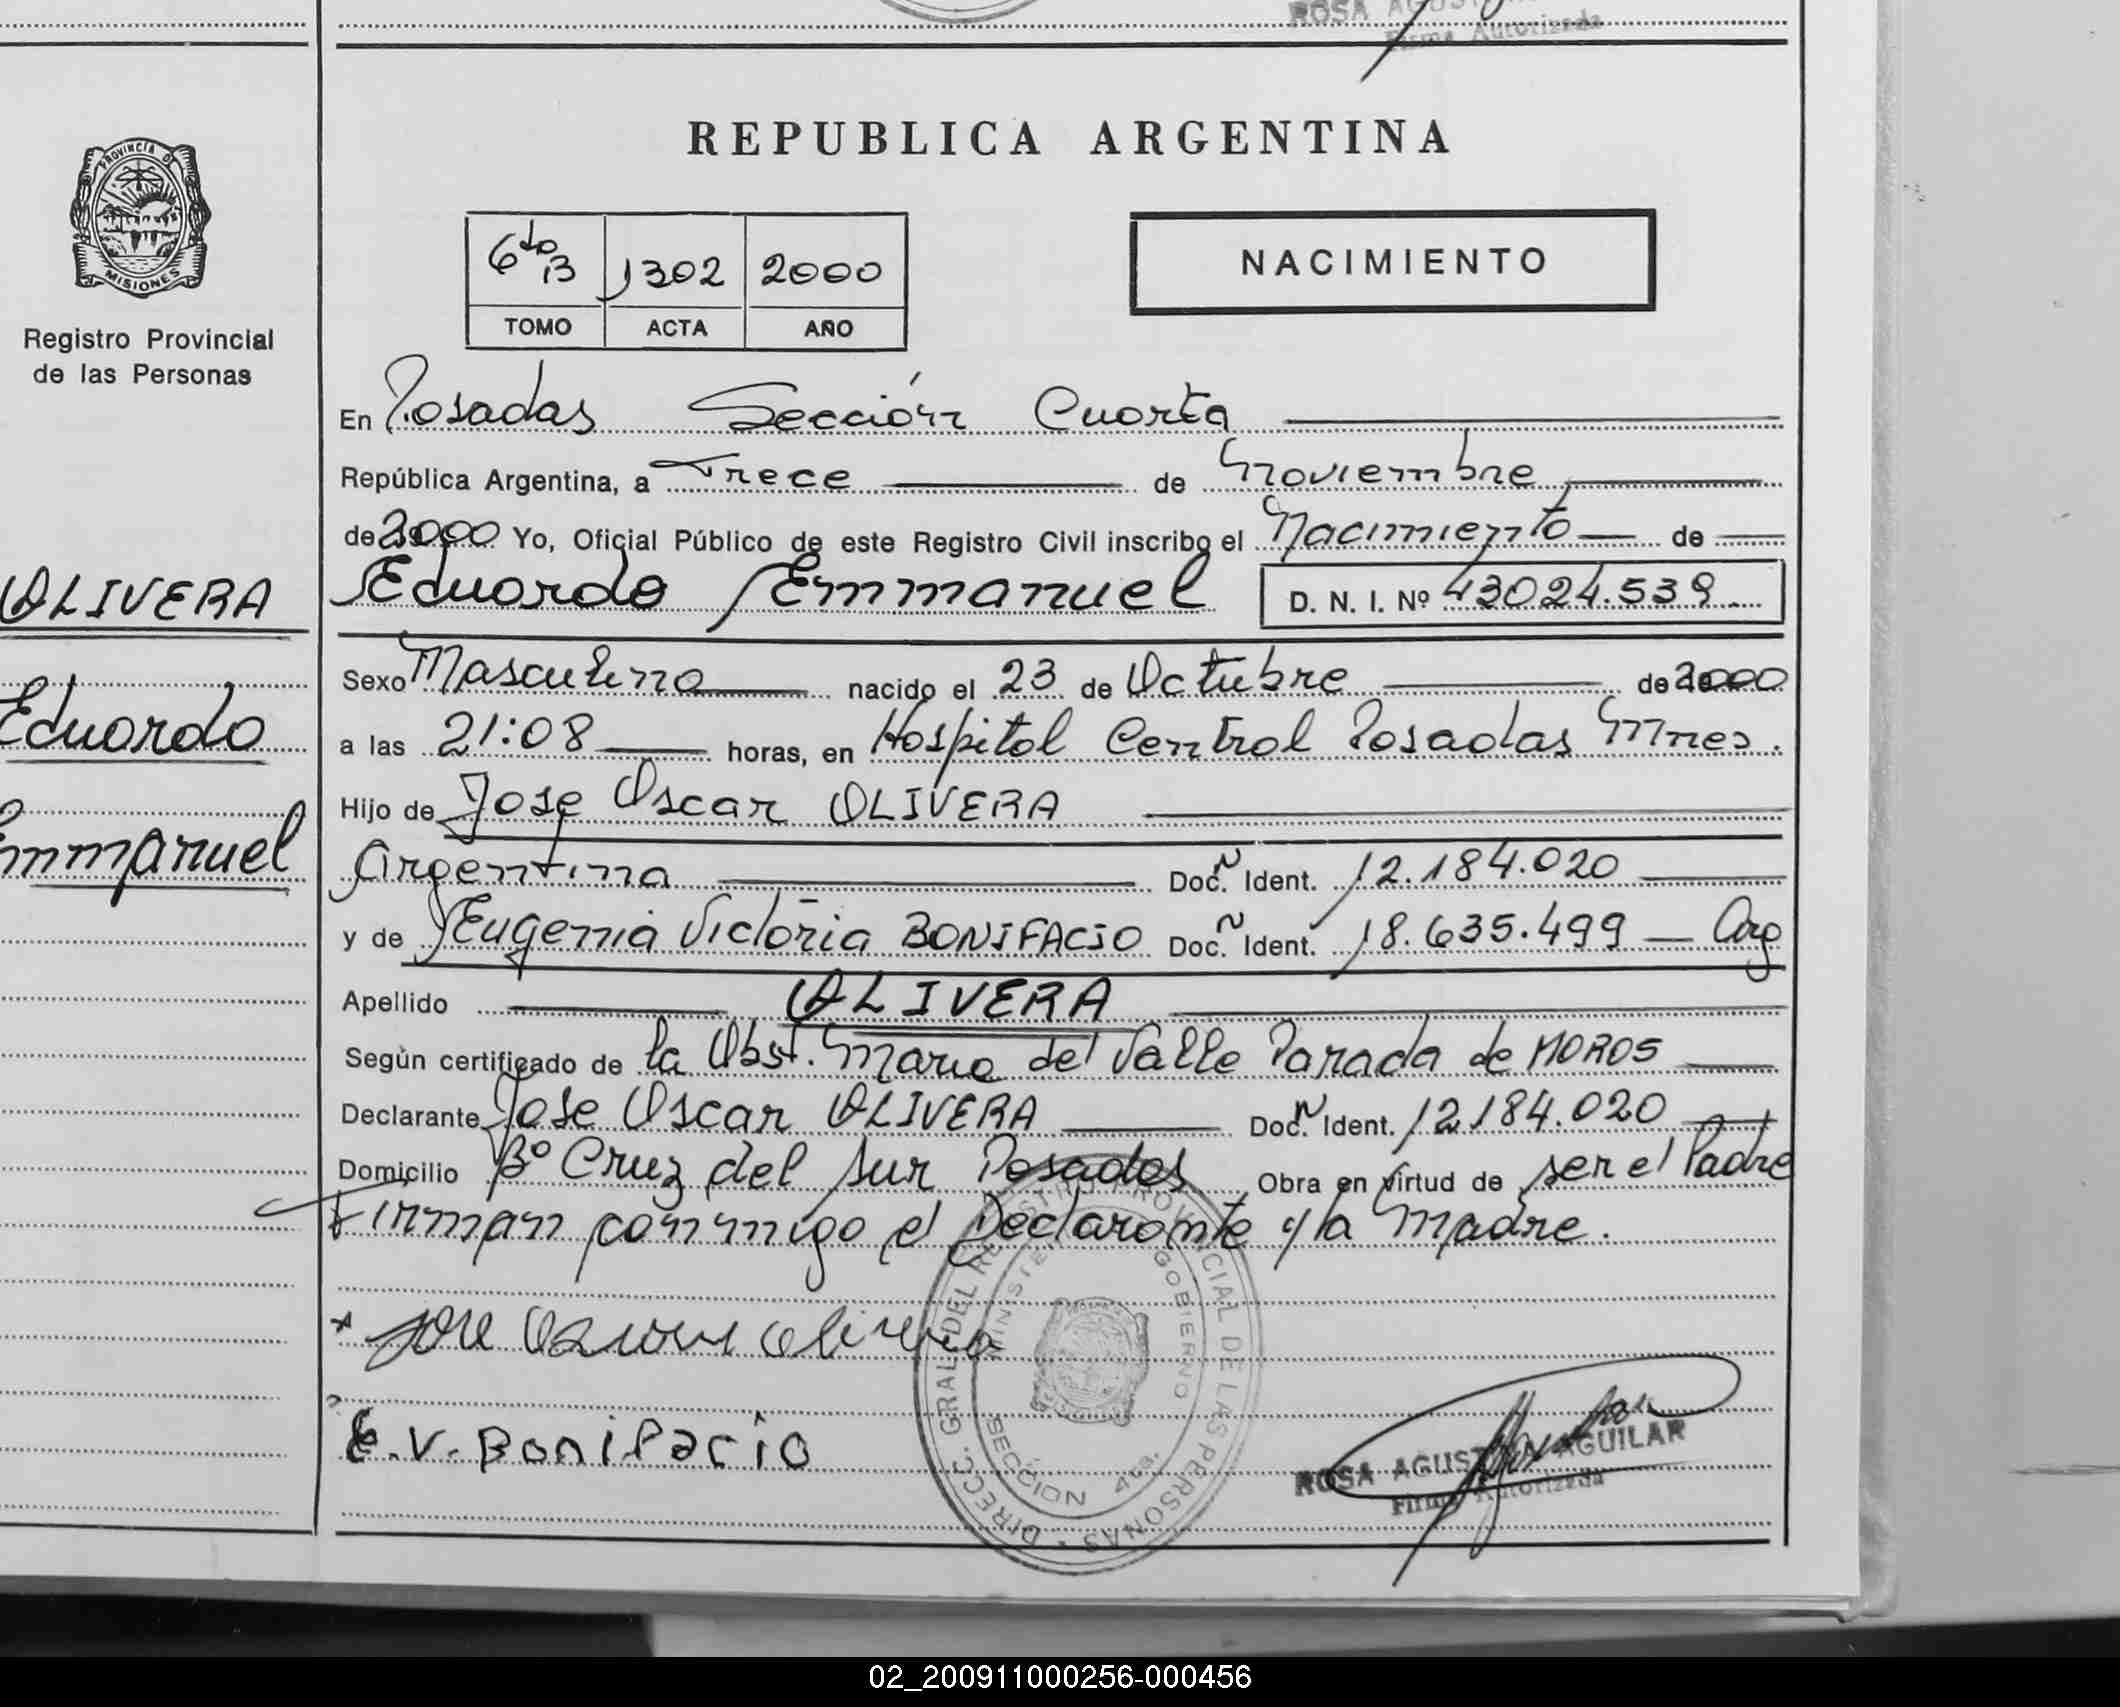 ROSA AGUST
Firma Autorizada
PROVINCIA D
MISIONES
Registro Provincial
de las Personas
OLIVERA
Eduardo
Emmanuel
REPUBLICA ARGENTINA
6to 13 1302 2000
TOMO ACTA AÑO
NACIMIENTO
En Posadas Sección Cuarta
República Argentina, a Trece de Noviembre
de 2000 Yo, Oficial Público de este Registro Civil inscribo el Nacimiento de
Eduardo Emmanuel D. N. I. Nº 43024.539
Sexo Masculino nacido el 23 de Octubre de 2000
a las 21:08 horas, en Hospital Central Posadas Mnes.
Hijo de Jose Oscar OLIVERA
Argentina Doc. Ñ Ident. 12.184.020
y de Eugenia Victoria BONIFACIO Doc. Ñ Ident. 18.635.499 Arg
Apellido OLIVERA
Según certificado de la Obst. Maria del Valle Parada de MOROS
Declarante Jose Oscar OLIVERA Doc. Ñ Ident. 12.184.020
Domicilio Bº Cruz del Sur Posadas Obra en virtud de ser el Padre
Firman conmigo el Declarante y la Madre.
Jose Oscar Olivera
E.V. Bonifacio
DIRECC. GRAL. DEL REGISTRO PROVINCIAL DE LAS PERSONAS
GOBIERNO
SECCION 4ta.
ROSA AGUSTINA AGUILAR
Firma Autorizada
02_200911000256-000456